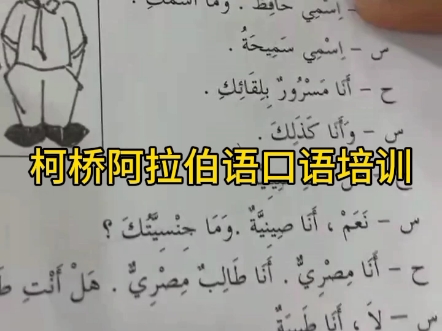 - اِسْمِي حَافِظ . وَمَا اسْمُكِ
س - اِسْمِي سَمِيحَةُ .
ح - أَنَا مَسْرُورٌ بِلِقَائِكِ .
س - وَأَنَا كَذَلِكَ .
柯桥阿拉伯语口语培训
س - نَعَمْ ، أَنَا صِينِيَّةٌ . وَمَا جِنْسِيَّتُكَ ؟
ح - أَنَا مِصْرِيٌّ . أَنَا طَالِبٌ مِصْرِيٌّ . هَلْ أَنْتِ
س - لاَ ، أَنَا طَبِيبَةٌ